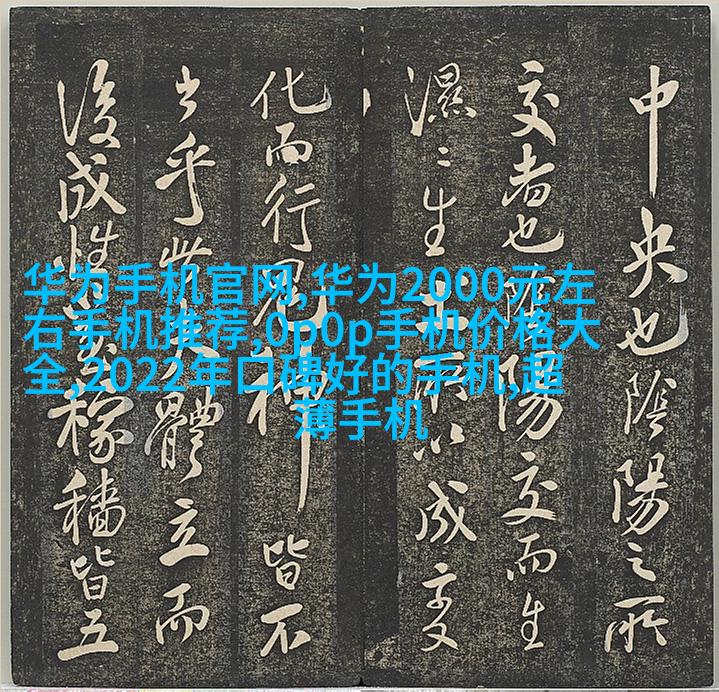 华为手机官网,华为2000元左
右手机推荐,0p0p手机价格大
全,2022年口碑好的手机,超
薄手机
中央也陰陽之所
交者也陰陽交而生
濕〻生雨以成变
化而行鬼神皆不
乎此體立而
後成性稼穡皆五